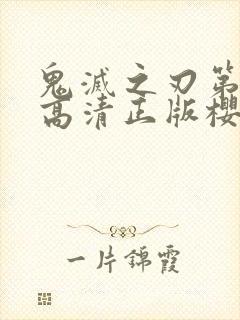 鬼滅之刃第
高清正版櫻
一片錦霞